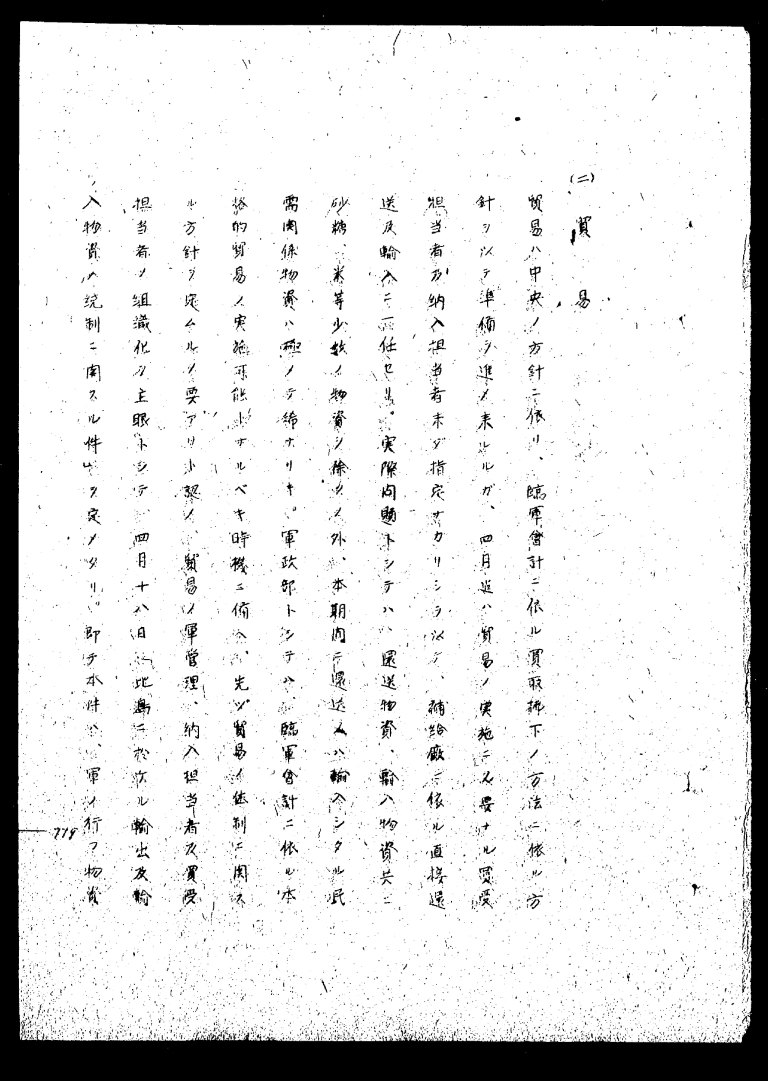 (二) 貿易
貿易ハ中央ノ方針ニ依リ、臨軍會計ニ依ル買取拂下ノ方法ニ依ル方
針ヲ以テ準備ヲ進メ来レルガ、四月迄ハ貿易ノ実施ニ必要ナル買受
担当者ガ納入担当者未ダ指定ナカリシヲ以テ、補給廠ニ依ル直接還
送及輸入ニ一任セリ。実際問題トシテハ、還送物資、輸入物資共ニ
砂糖、米等少数ノ物資ヲ除クノ外、本期間ニ還送又ハ輸入シタル民
需関係物資ハ極メテ稀ナリキ。軍政部トシテハ、臨軍會計ニ依ル本
格的貿易ノ実施可能トナルベキ時機ニ備ヘ、先ヅ貿易ノ体制ニ関ス
ル方針ヲ定ムルノ要アリト認メ、貿易ノ軍管理、納入担当者及買受
担当者ノ組織化ヲ主眼トシテ、四月十八日「比島ニ於ケル輸出及輸
入物資ノ統制ニ関スル件」ヲ定メタリ。即チ本件ハ、軍ノ行フ物資
779